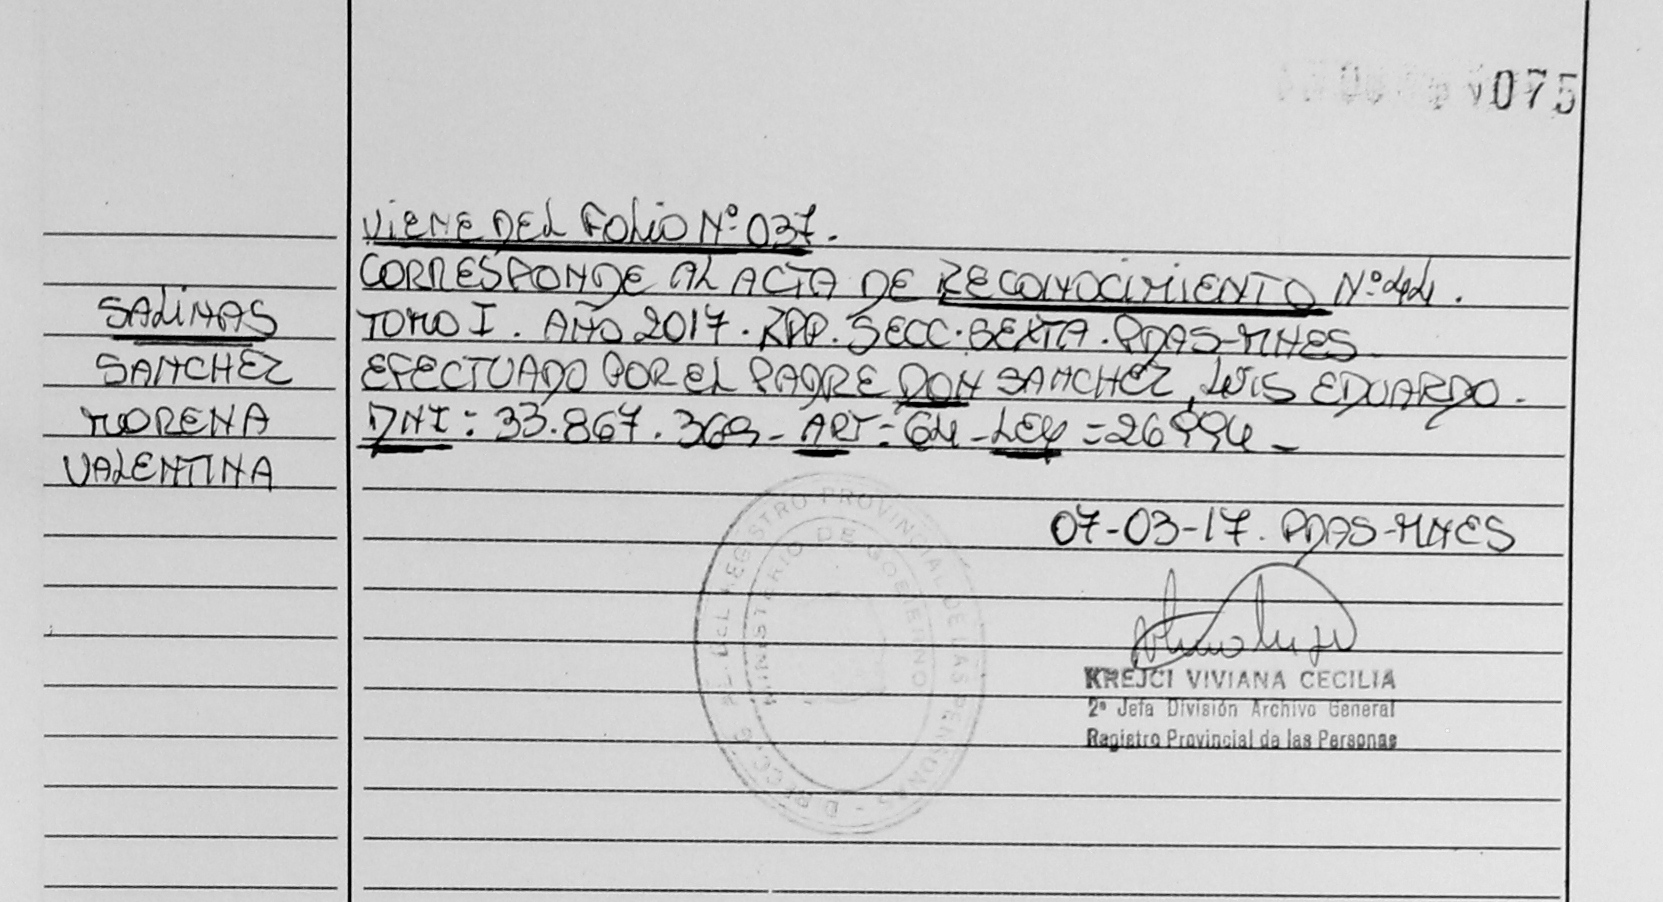 075
VIENE DEL FOLIO Nº 037.
CORRESPONDE AL ACTA DE RECONOCIMIENTO Nº 44.
TOMO I. AÑO 2017. RPP. SECC. SEXTA. PDAS-MNES
EFECTUADO POR EL PADRE DON SANCHEZ, LUIS EDUARDO.
DNI: 33.867.369- ART= 64- LEY =26994-
SALINAS
SANCHEZ
MORENA
VALENTINA
07-03-17. PDAS-MNES
KREJCI VIVIANA CECILIA
2ª Jefa División Archivo General
Registro Provincial de las Personas
DIRECC. GRAL. DEL REGISTRO PROVINCIAL DE LAS PERSONAS -
MINISTERIO DE GOBIERNO